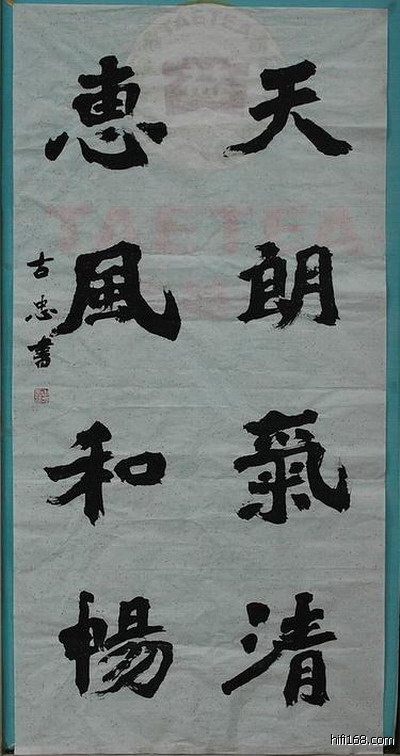 天朗氣清
惠風和暢
古忠書
TAETEA
TAETEA
hifi168.com